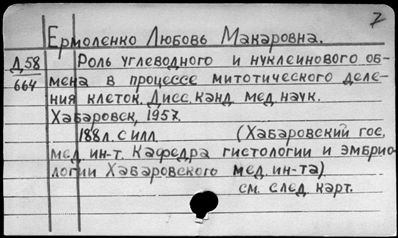 7
Ермоленко Любовь Макаровна.
Д58
664
Роль углеводного и нуклеинового об-
мена в процессе митотического деле-
ния клеток. Дисс. канд. мед. наук.
Хабаровск, 1957.
188л. с илл. (Хабаровский гос.
мед. ин-т. Кафедра гистологии и эмбрио-
логии Хабаровского мед. ин-та)
см. след. карт.